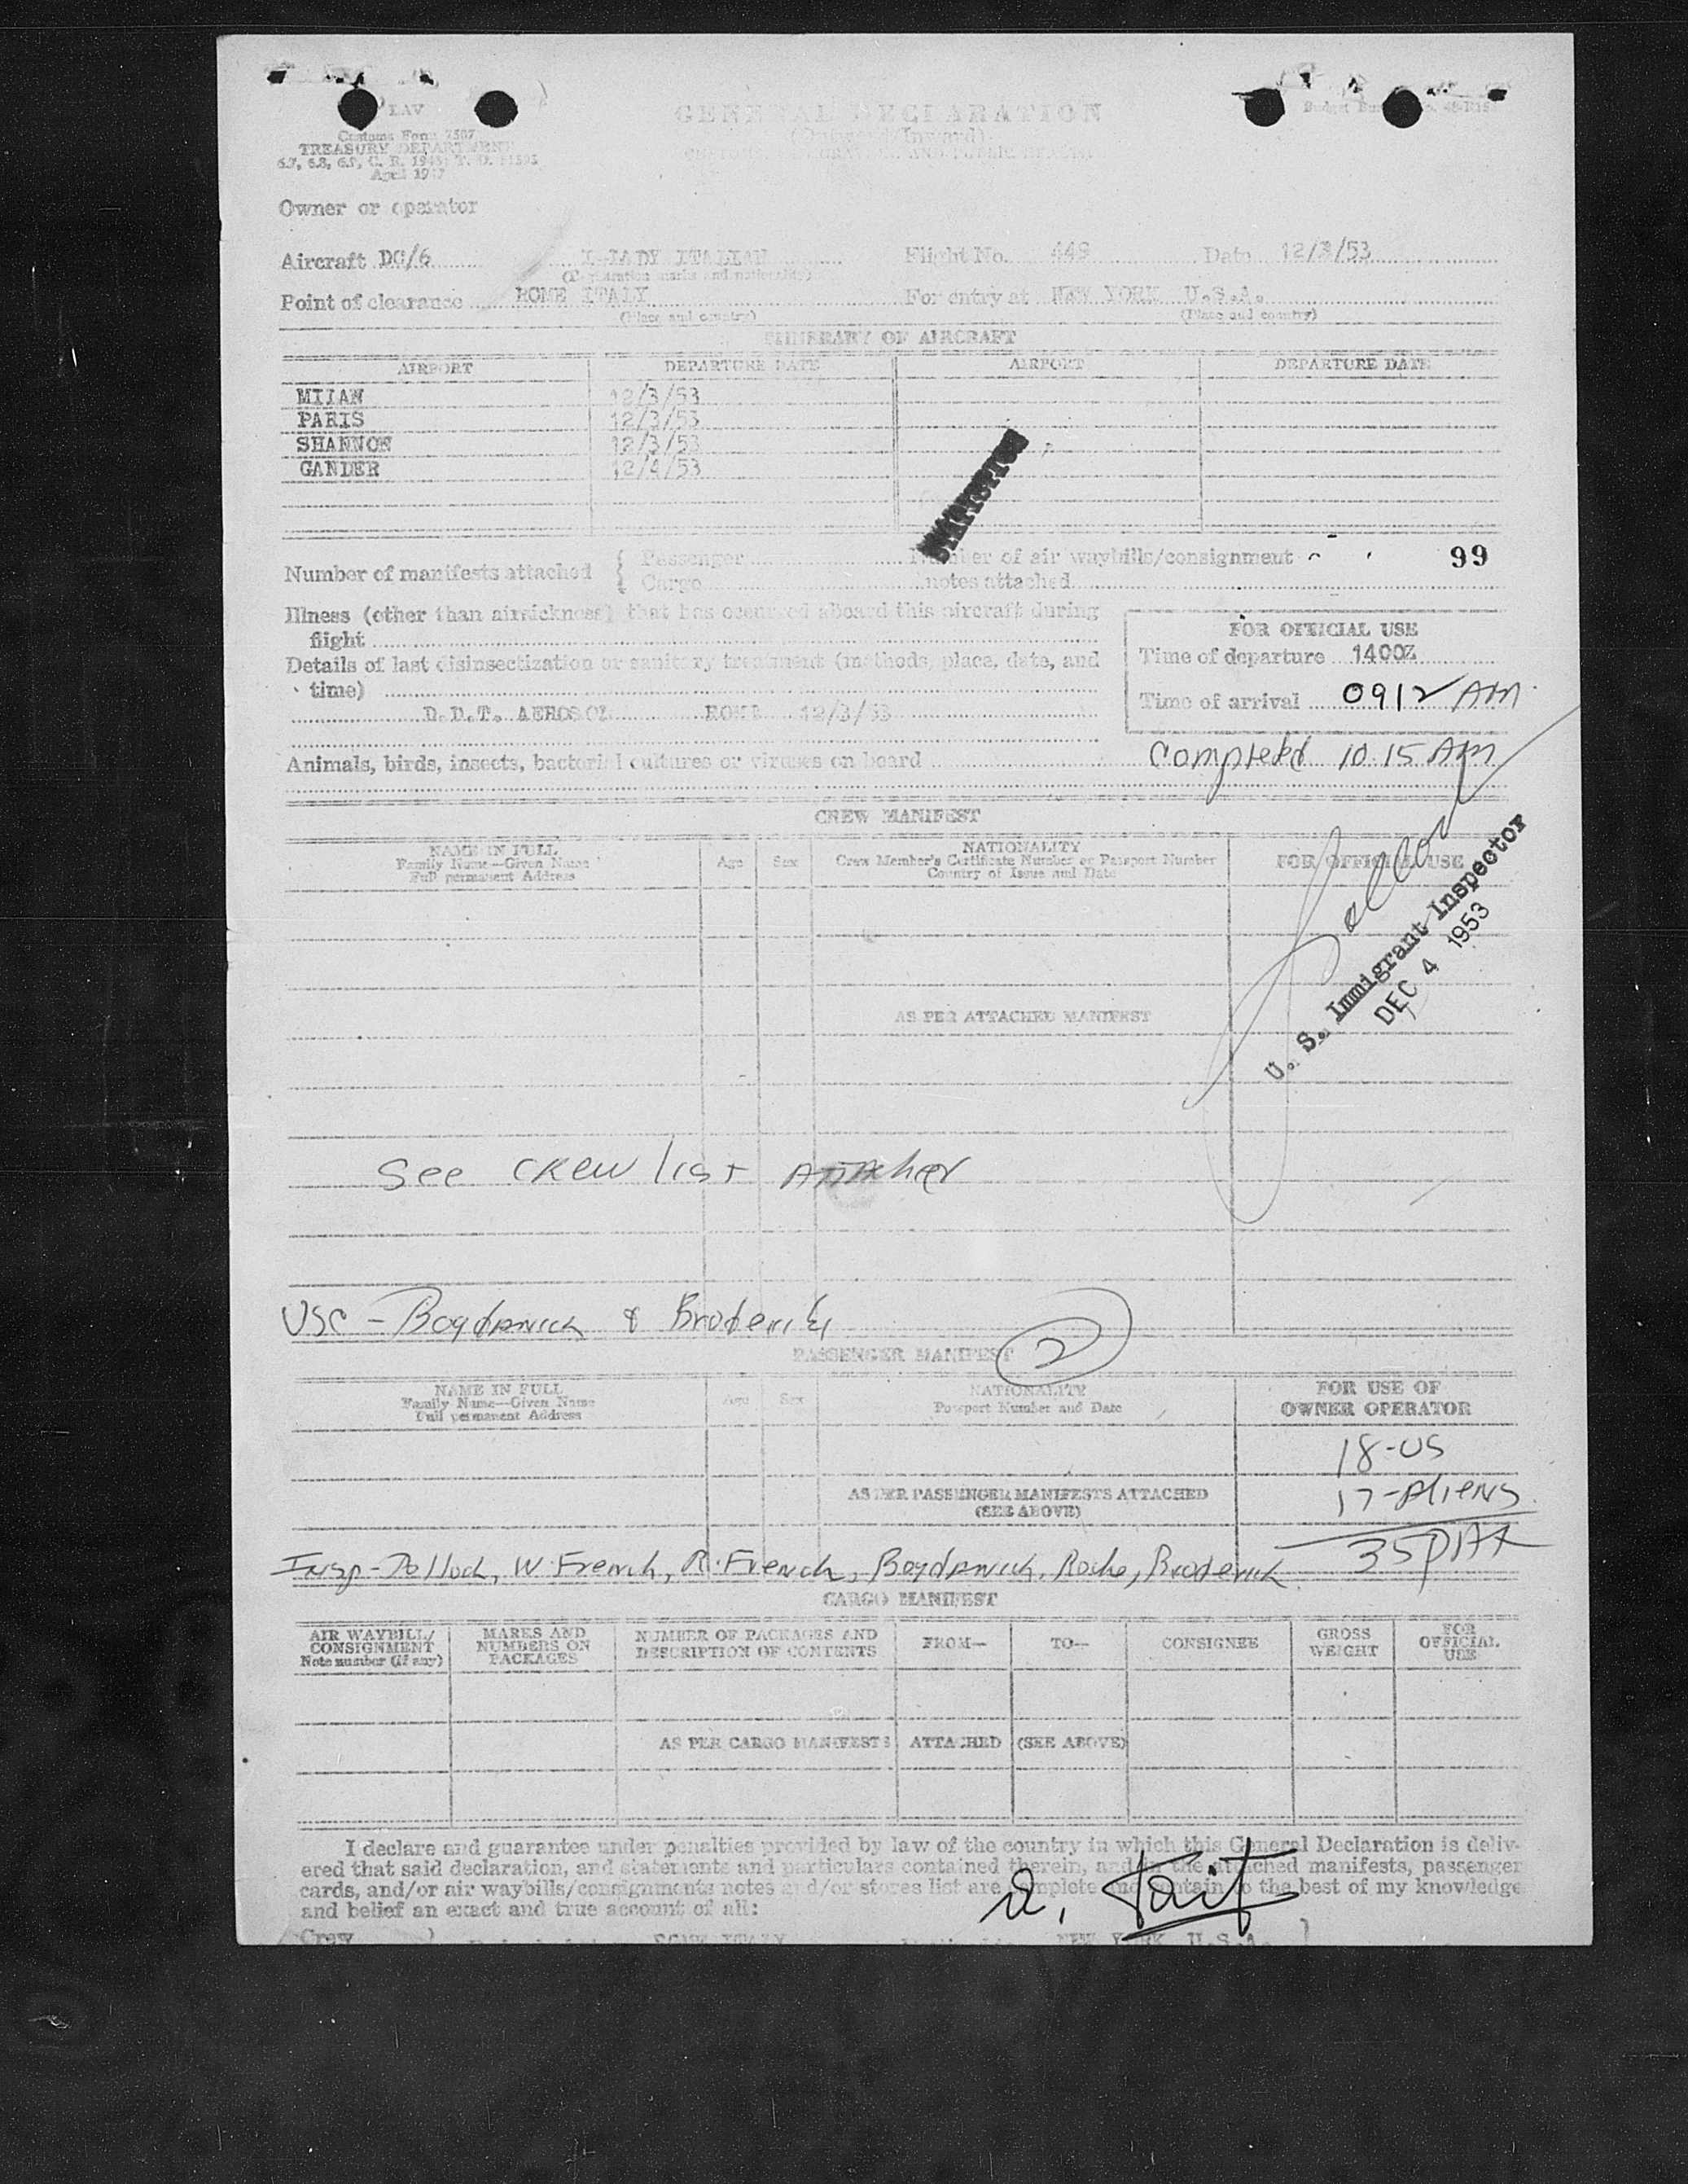 LAV
Customs Form 7507
TREASURY DEPARTMENT
April 1947
GENERAL DECLARATION
(Inward)
Owner or operator
Aircraft DC/6 I-LADY ITALIAN Flight No. 449 Date 12/3/53
(Registration marks and nationality)
Point of clearance ROME ITALY For entry at NEW YORK U.S.A.
(Place and country) (Place and country)
ITINERARY OF AIRCRAFT
AIRPORT DEPARTURE DATE AIRPORT DEPARTURE DATE
MILAN 12/3/53
PARIS 12/3/53
SHANNON 12/3/53
GANDER 12/4/53
Number of manifests attached { Passenger Number of air waybills/consignment 99
Cargo notes attached
Illness (other than airsickness) that has occurred aboard this aircraft during
flight
FOR OFFICIAL USE
Time of departure 1400Z
Time of arrival 0912 AM
Details of last disinsectization or sanitary treatment (methods, place, date, and
time)
D.D.T. AEROSOL ROME 12/3/53
Animals, birds, insects, bacterial cultures or viruses on board
Completed 10.15 AM
CREW MANIFEST
NAME IN FULL
Family Name—Given Name
Full permanent Address
Age Sex
NATIONALITY
Crew Member's Certificate Number or Passport Number
Country of Issue and Date
FOR OFFICIAL USE
U. S. Immigrant Inspector
DEC 4 1953
AS PER ATTACHED MANIFEST
See CREW list Attached
USC - Bogdanwich & Broderick
PASSENGER MANIFEST 2
NAME IN FULL
Family Name—Given Name
Full permanent Address
Age Sex
NATIONALITY
Passport Number and Date
FOR USE OF
OWNER OPERATOR
18-US
17-Aliens
AS PER PASSENGER MANIFESTS ATTACHED
(SEE ABOVE)
35 PAX
Insp - Pollock, W. French, R. French, Bogdanwich, Roche, Broderick
CARGO MANIFEST
AIR WAYBILL/
CONSIGNMENT
Note number (if any)
MARKS AND
NUMBERS ON
PACKAGES
NUMBER OF PACKAGES AND
DESCRIPTION OF CONTENTS
FROM— TO— CONSIGNEE
GROSS
WEIGHT
FOR
OFFICIAL
USE
AS PER CARGO MANIFESTS ATTACHED (SEE ABOVE)
I declare and guarantee under penalties provided by law of the country in which this General Declaration is deliv-
ered that said declaration, and statements and particulars contained therein, and in the attached manifests, passenger
cards, and/or air waybills/consignments notes and/or stores list are complete and contain to the best of my knowledge
and belief an exact and true account of all:
Crew ROME ITALY NEW YORK U.S.A.